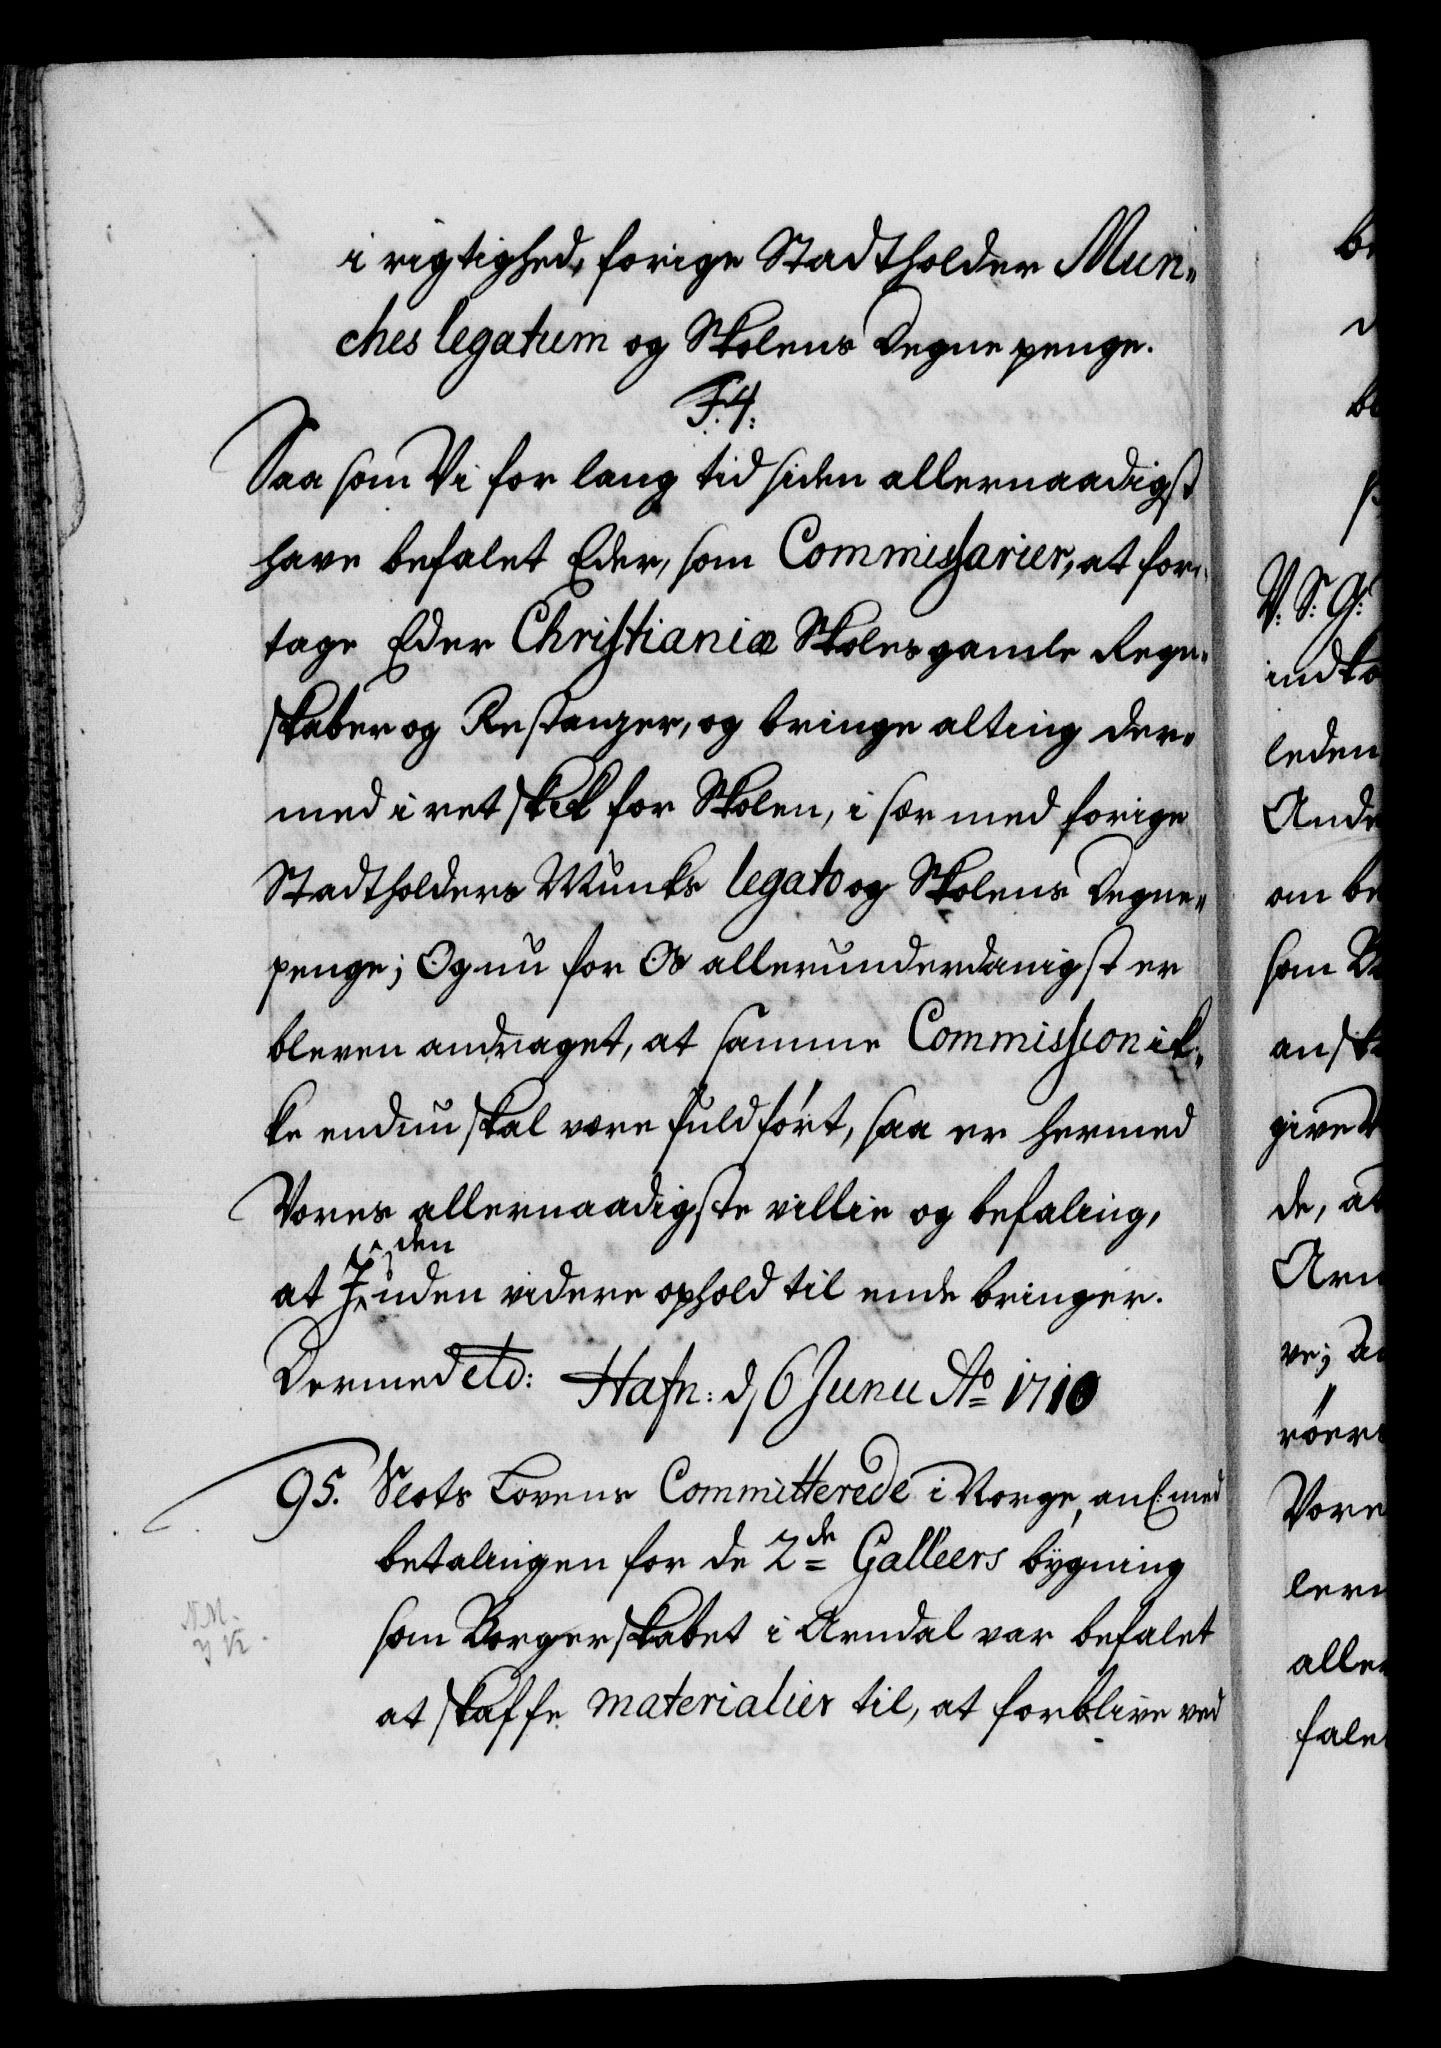 i rigtighed, forige Stadtholder Mun-
ches legatum og Skolens Degne penge.
F. 4.
Saa som Vi for lang tid siden allernaadigst
have befalet Eder, som Commissarier, at fore-
tage Eder Christianiæ Skoles gamle Regn-
skaber og Restanzer, og bringe alting der-
med i ret skik for Skolen, i sær med forige
Stadtholders Munks legato og Skolens Degne-
penge; Og nu for Os allerunderdanigst er
bleven andraget, at samme Commission ik-
ke endnu skal være fuldført, saa er hermed
Vores allernaadigste villie og befaling,
den
at I uden videre ophold til ende bringer.
Dermed etc: Hafn: d 6 Junii Ao 1710
95. Slots Lovens Committerede i Norge, anl. med
betalingen for de 2de Galleers bÿgning
som Borgerskabet i Arndal var befalet
at skaffe materialier til, at forblive ved